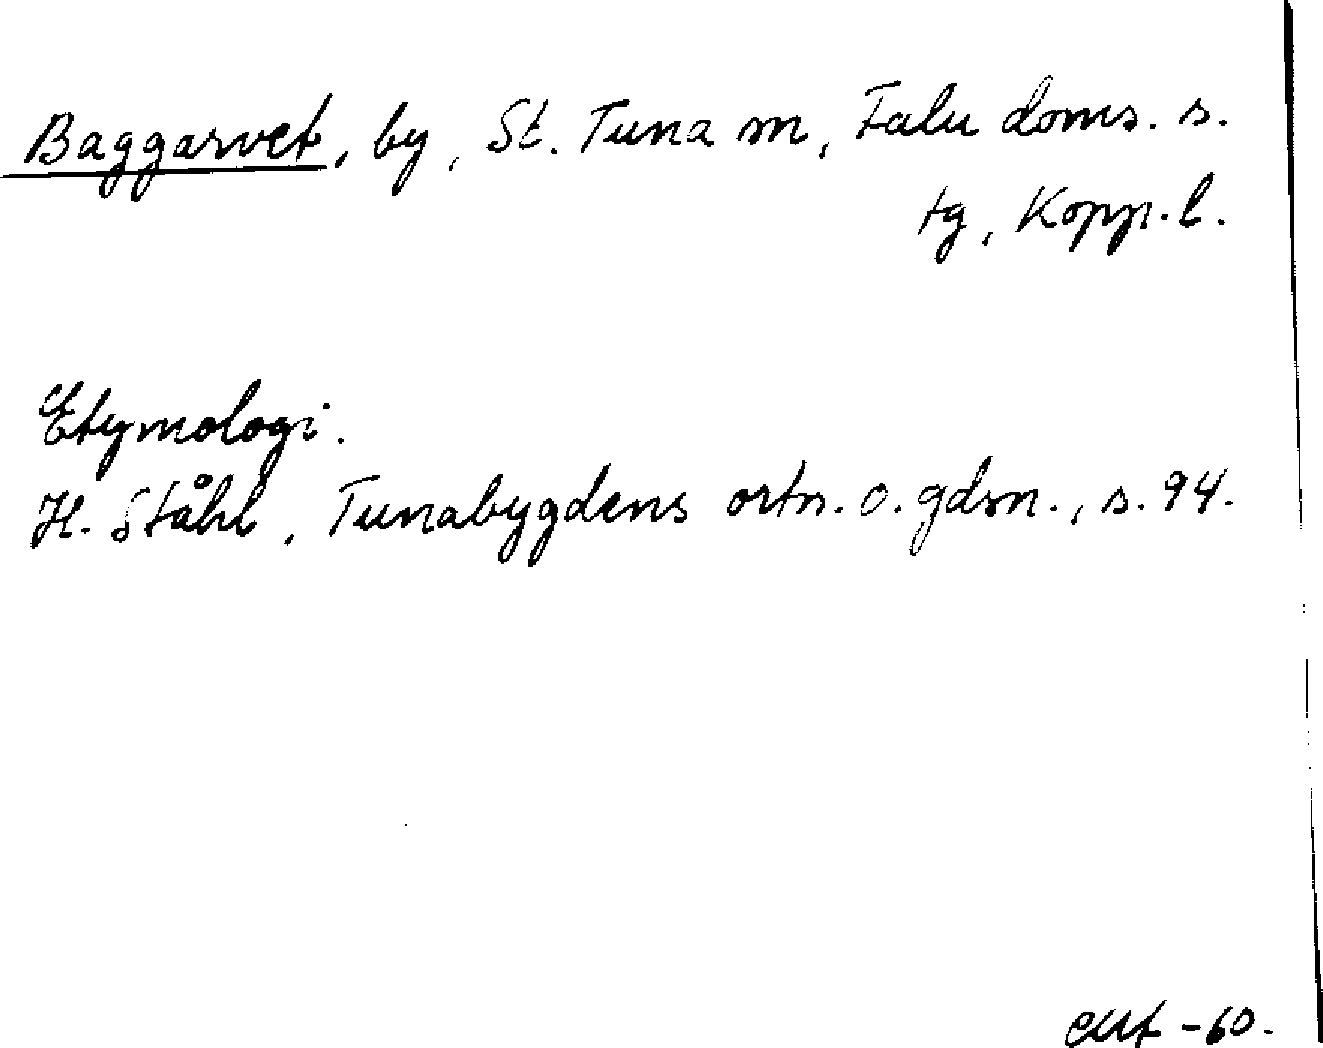 Baggarvet, by, St. Tuna sn, Falu doms. s.
tg, Kopp. l.
Etymologi.
H. Ståhl, Tunabygdens ortn. o. gdsn., s. 94.
-60.